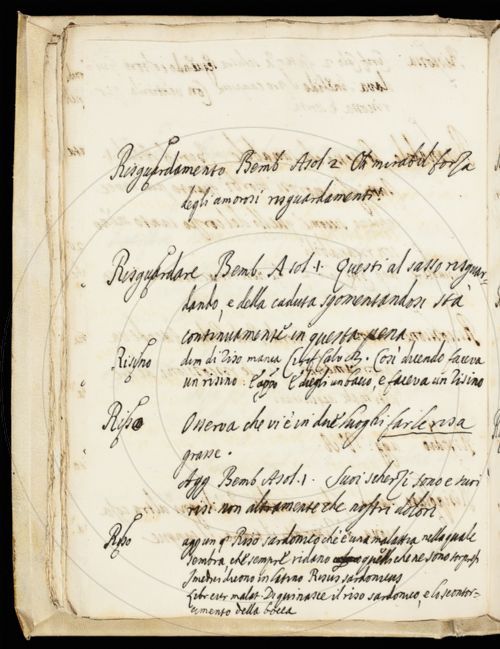 Risguardamento Bemb Asol 2 Oh mirabil forza
degli amorosi risguardamenti!
Risguardare Bemb. Asol. 1. Questi al sasso risguar-
dando, e della caduta sgomentandosi sta
continuamente in questa pena
Risino dim di Riso manca Così dicendo faceva
un risino: e faceva un Risino
Riso Osserva che vi è in due luoghi far le risa
grasse.
Agg Bemb Asol. 1. Suoi scherzi sono e suoi
risi non altramente che nostri dolori
Riso agg un Riso sardonico ch'è una malattia nella quale
sembra che sempre ridano quelli che ne sono
I medici dicono in latino Risus sardonicus
malat. Di qui nasce il riso sardonico, e lo scontor-
cimento della bocca